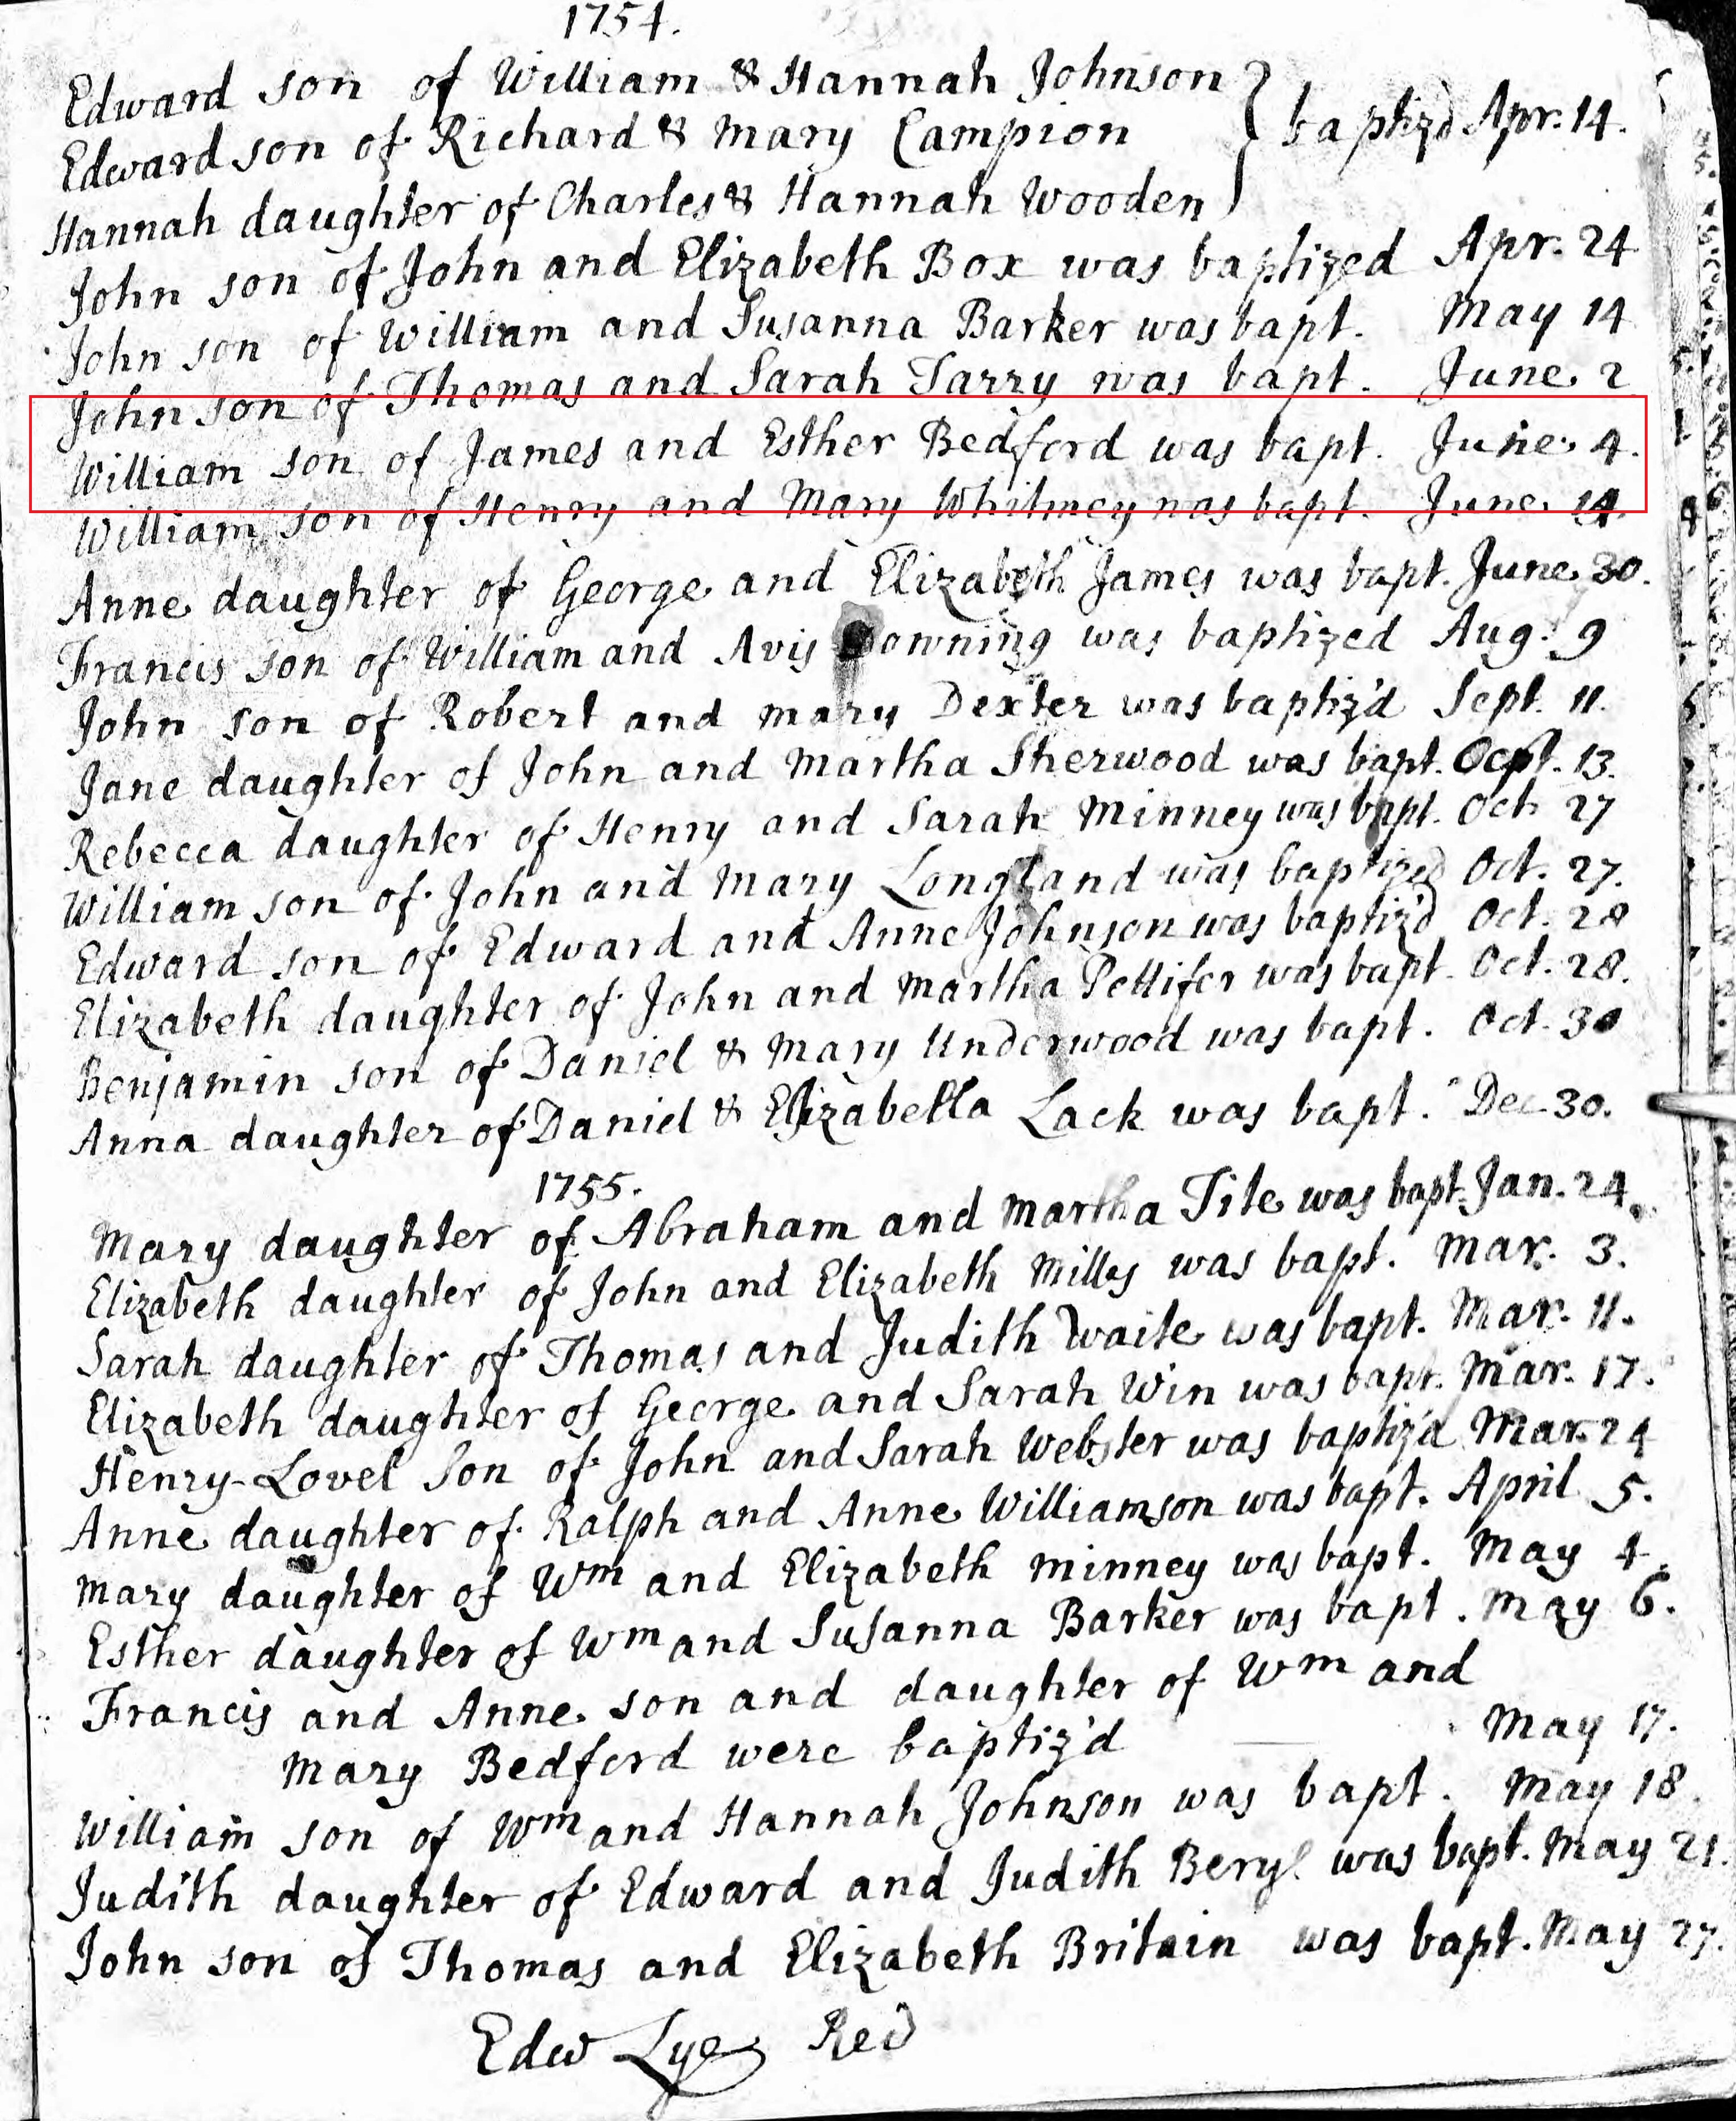 1754.
Edward son of William & Hannah Johnson
Edward son of Richard & Mary Campion } baptiz'd Apr. 14.
Hannah daughter of Charles & Hannah Wooden
John son of John and Elizabeth Box was baptized Apr. 24
John son of William and Susanna Barker was bapt. May 14
John son of Thomas and Sarah Tarry was bapt. June 2
William son of James and Esther Bedford was bapt. June 4.
William son of Henry and Mary Whitmey was bapt. June 14.
Anne daughter of George and Elizabeth James was bapt. June 30.
Francis son of William and Avis Downing was baptized Aug. 9
John son of Robert and Mary Dexter was baptiz'd Sept. 11.
Jane daughter of John and Martha Sherwood was bapt. 13.
Rebecca daughter of Henry and Sarah Minney was bapt. Oct. 27
William son of John and Mary Longland was baptized Oct. 27.
Edward son of Edward and Anne Johnson was baptiz'd Oct. 28
Elizabeth daughter of John and Martha Pettifer was bapt. Oct. 28.
Benjamin son of Daniel & Mary Underwood was bapt. Oct. 30
Anna daughter of Daniel & Elizabella Lack was bapt. Dec 30.
1755.
Mary daughter of Abraham and Martha Tite was bapt. Jan. 24.
Elizabeth daughter of John and Elizabeth Mills was bapt. Mar. 3.
Sarah daughter of Thomas and Judith Waite was bapt. Mar. 11.
Elizabeth daughter of George and Sarah Win was bapt. Mar. 17.
Henry-Lovel Son of John and Sarah Webster was baptiz'd Mar. 24
Anne daughter of Ralph and Anne Williamson was bapt. April 5.
Mary daughter of Wm and Elizabeth Minney was bapt. May 4.
Esther daughter of Wm and Susanna Barker was bapt. May 6.
Francis and Anne son and daughter of Wm and
Mary Bedford were baptiz'd May 17.
William son of Wm and Hannah Johnson was bapt. May 18.
Judith daughter of Edward and Judith was bapt. May 21.
John son of Thomas and Elizabeth Britain was bapt. May 27.
Edw Lye